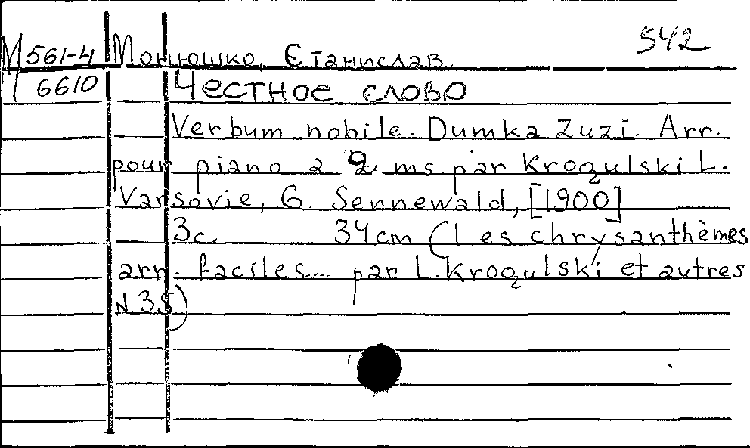 542
М 561-4 Монюшко, Станислав.
6610 Честное слово
Verbum nobile. Dumka Zuzi. Arr.
pour piano a 2 ms par Krogulski L.
Varsovie, G. Sennewald, [1900]
3c. 34cm (Les chrysanthèmes
arr. faciles... par L. Krogulski et autres
N 38)